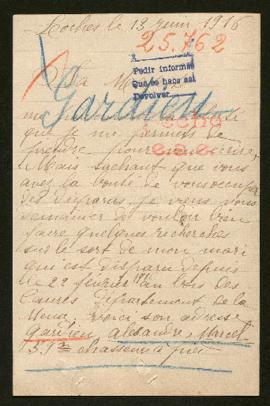 Loches le 13 Juin 1916
25.762
Pedir informes
Que se haga así
Devolver
Gardien
que je me permets de
prendre pour
Mais sachant que vous
avez la bonté de vous occuper
des disparus je viens vous
demander de vouloir bien
faire quelques recherches
sur le sort de mon mari
qui est disparu depuis
le 22 février au bois des
Caures Département de la
Meuse voici son adresse
Gardien Alexandre Marcel
59me chasseurs à pied